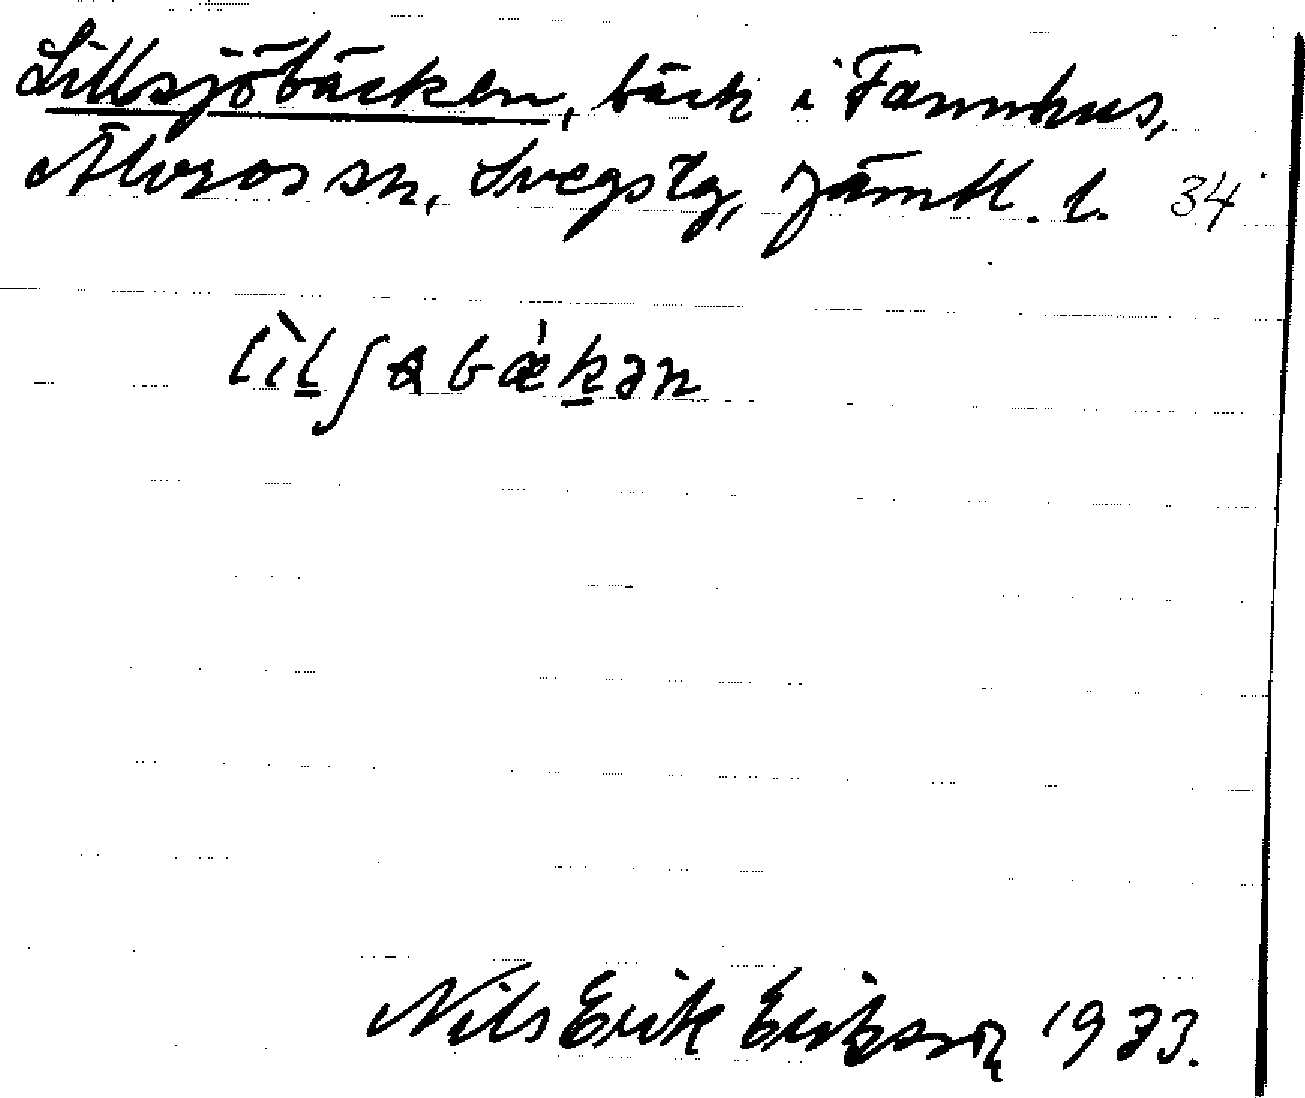 Lillsjöbäcken, bäck i Fannhus,
Älvros sn, Svegs tg, Jämtl. l. 34
lìlʃɑbǽkən
Nils Erik Eriksson 1933.